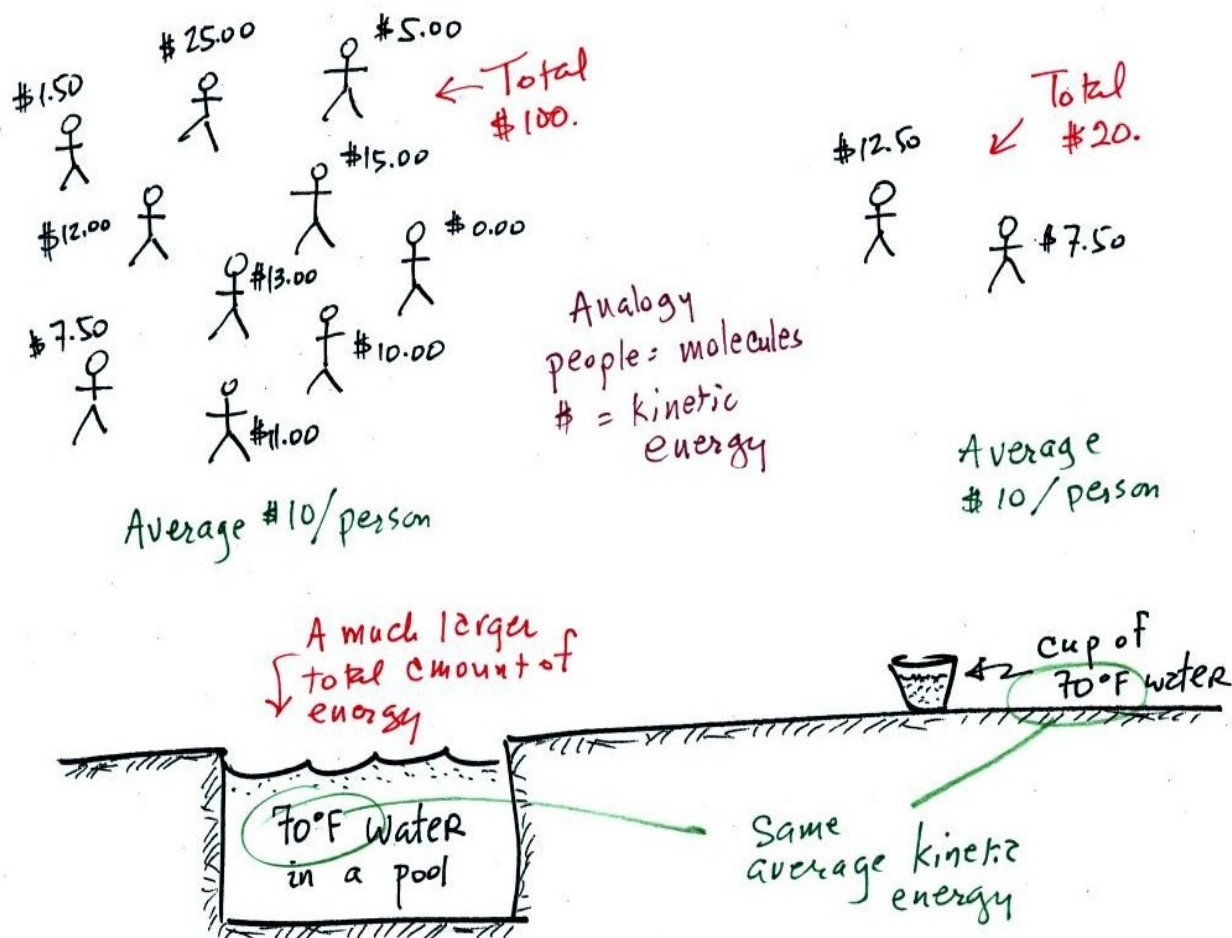 $25.00
$5.00
$1.50
← Total
$100.
$15.00
$12.00
$0.00
$13.00
$7.50
$10.00
$11.00
Average $10/person
Analogy
people = molecules
$ = kinetic
energy
Total
$20.
$12.50
$7.50
Average
$10/person
A much larger
total amount of
energy
cup of
70°F water
70°F water
in a pool
Same
average kinetic
energy